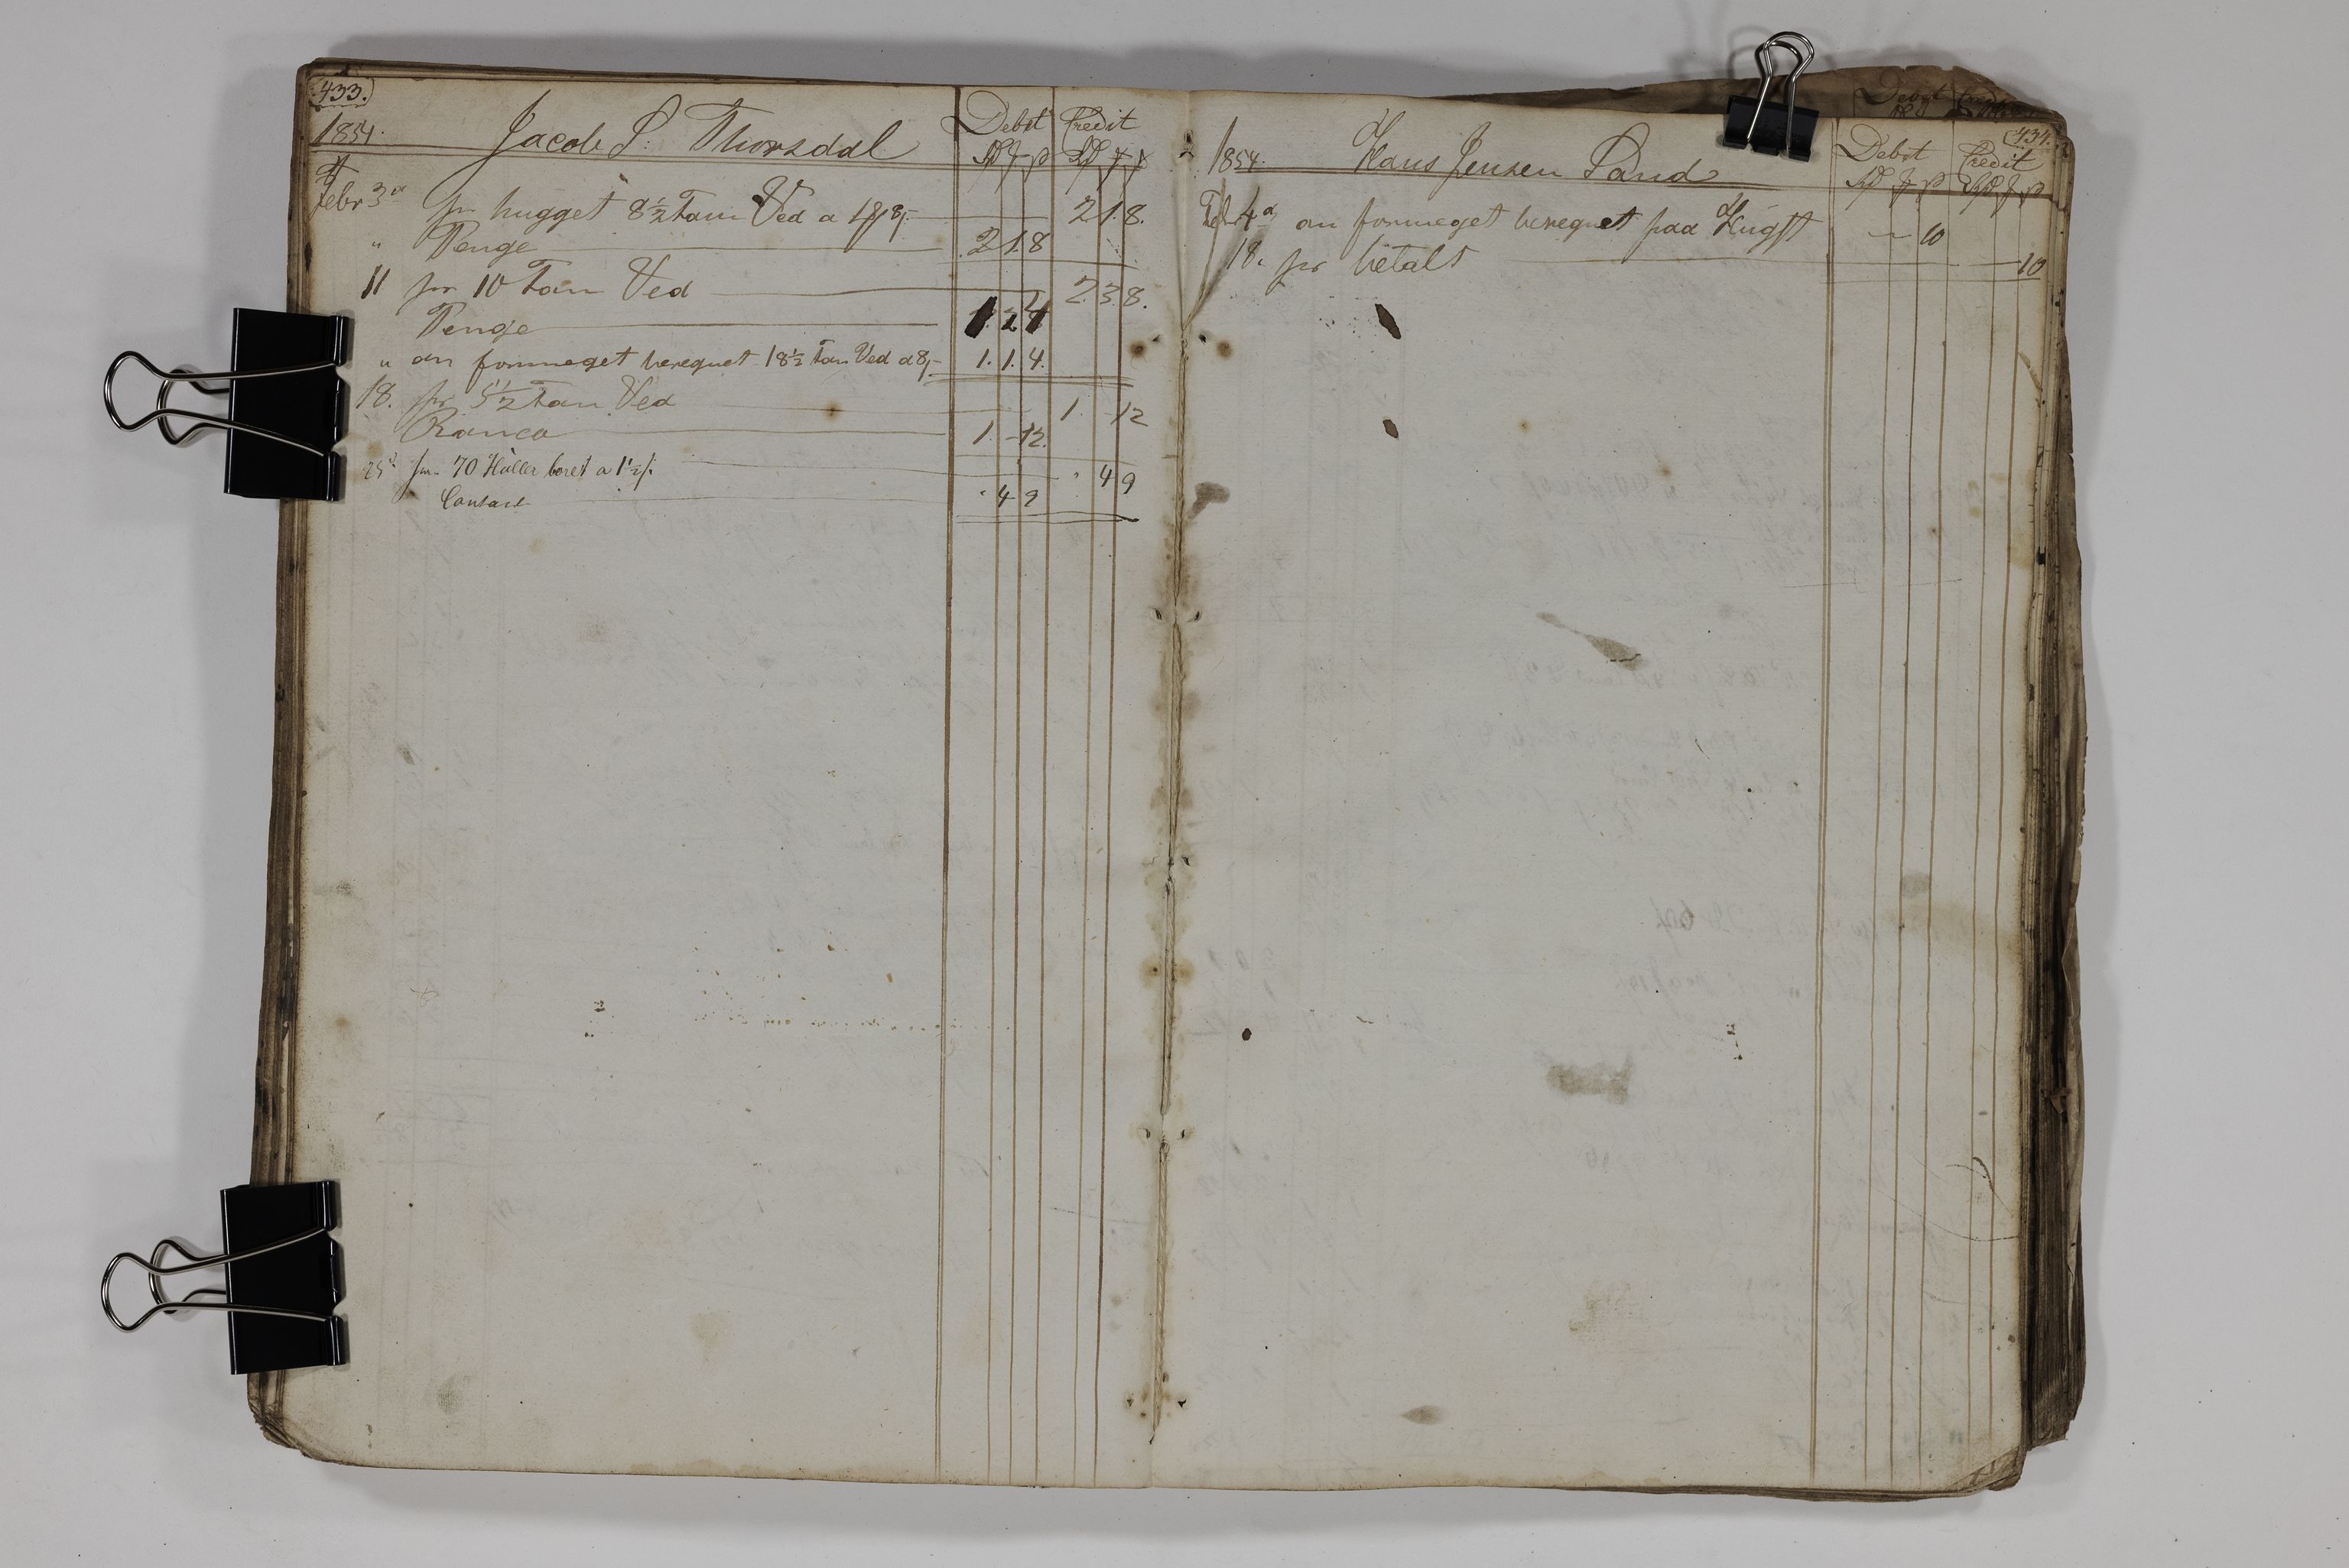 433.
1854. Jacob S. Thorsdal Debet Credit
Febr 3d pr hugget 8½ Favn Ved a 1 8 2.1.8.
" Penge 2.1.8
11 pr 10 Favn Ved 2.3.8.
Penge 1.2.4
" an formeget beregnet 18½ Favn Ved a 8 1.1.4.
18. pr 5½ Favn Ved 1. - 12
Ranco 1. - 12.
25d pr 70 Huller boret a 1½ " 4 9
Contant " 4 9
434.
1854. Hans Jensen Sand Debet Credit
Feb 4d an formeget beregnet paa Hugst - 10
18. pr betalt - 10